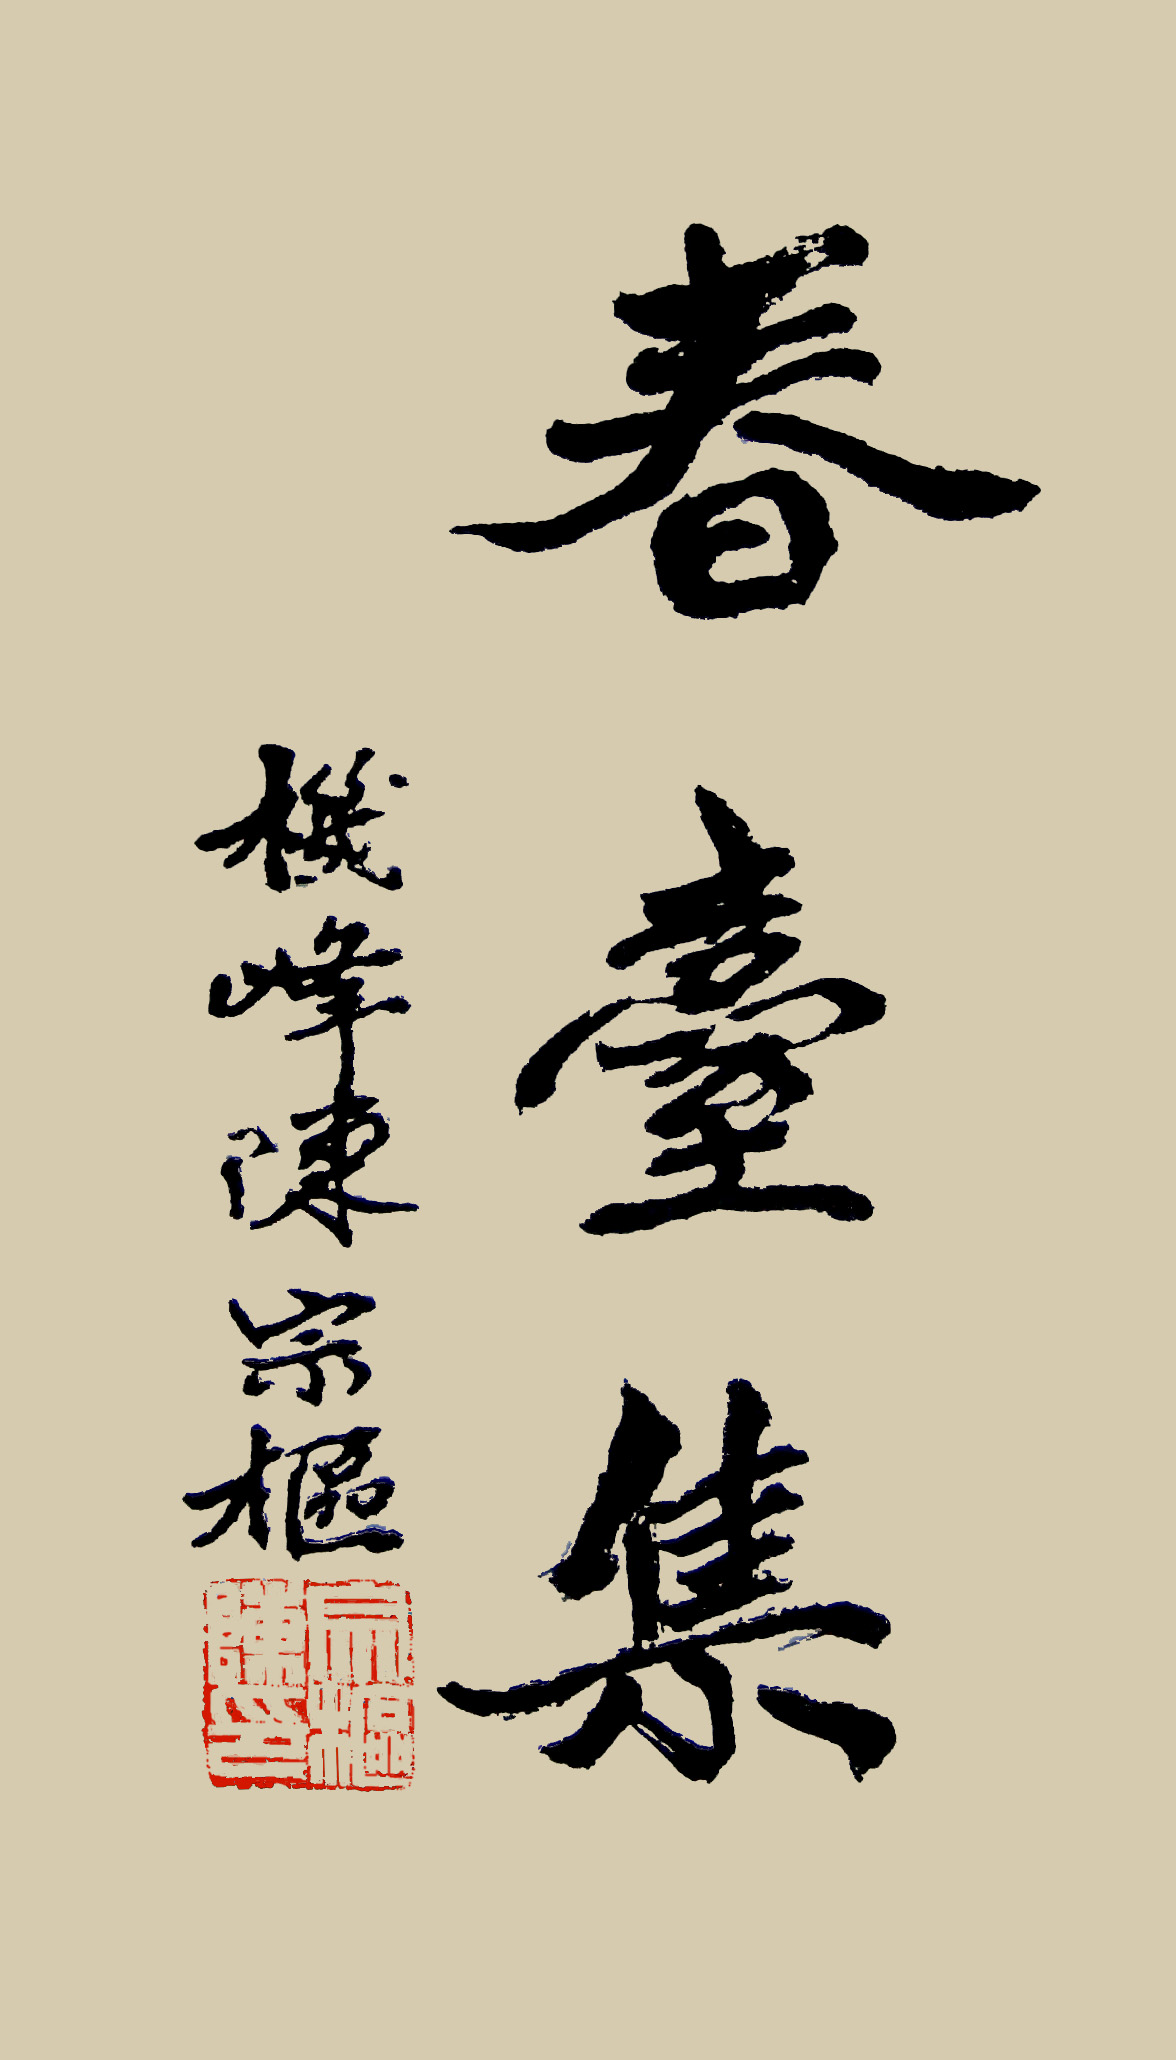 春臺集
機峰陳宗樞
宗樞
陳印